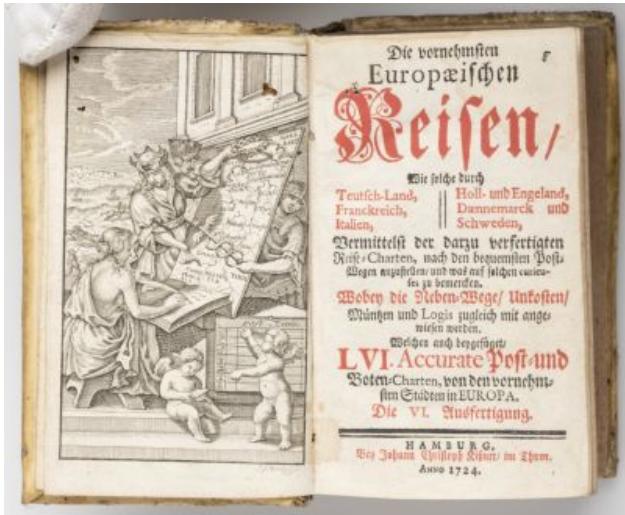 Die vornehmsten
Europæischen
Reisen/
Wie solche durch
Teutsch-Land,
Franckreich,
Italien,
Holl- und Engeland,
Dannemarck und
Schweden,
Vermittelst der darzu verfertigten
Reise-Charten, nach den bequemsten Post-
Wegen anzustellen/ und was auf solchen curieu-
ses zu bemercken.
Wobey die Neben-Wege/ Unkosten/
Müntzen und Logis zugleich mit ange-
wiesen werden.
Welchen auch beygefüget/
LVI. Accurate Post- und
Boten-Charten, von den vornehm-
sten Städten in EUROPA.
Die VI. Ausfertigung.
HAMBURG,
Bey Johann Christoph Kißner/ im Thum.
ANNO 1724.